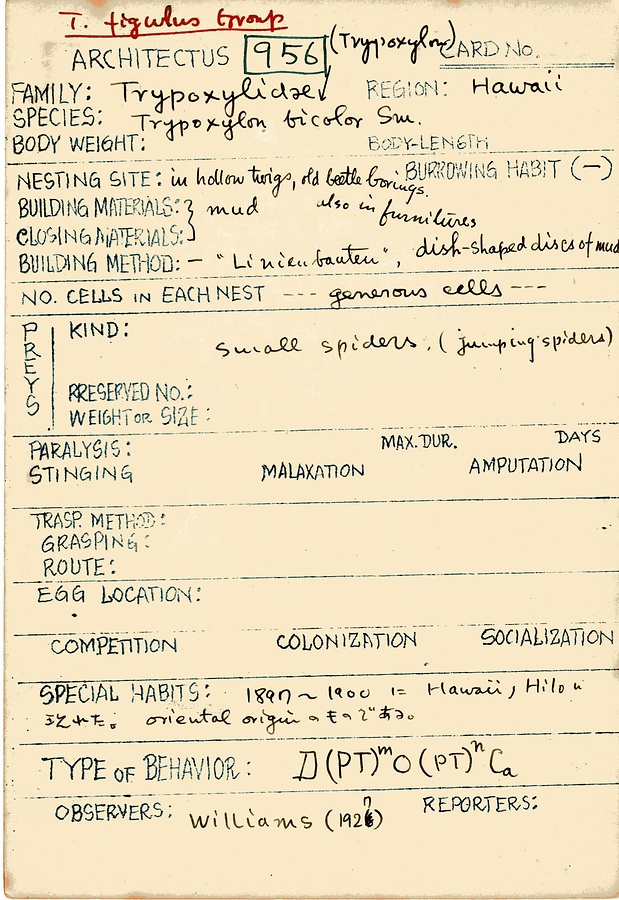 T. figulus Group
ARCHITECTUS 956 (Trypoxylon) CARD NO.
FAMILY: Trypoxylidae REGION: Hawaii
SPECIES: Trypoxylon bicolor Sm.
BODY WEIGHT: BODY-LENGTH
NESTING SITE: in hollow twigs, old beetle borings. BURROWING HABIT (-)
also in furnitures
BUILDING MATERIALS: } mud
CLOSING MATERIALS:
BUILDING METHOD: - "Linienbauten", dish-shaped discs of mud
NO. CELLS IN EACH NEST --- generous cells ---
PREYS
KIND: Small spiders. (jumping spiders)
PRESERVED NO.:
WEIGHT OR SIZE:
PARALYSIS: MAX. DUR. DAYS
STINGING MALAXATION AMPUTATION
TRASP. METHOD:
GRASPING:
ROUTE:
EGG LOCATION:
COMPETITION COLONIZATION SOCIALIZATION
SPECIAL HABITS: 1897~1900 に Hawaii, Hilo に
現れた。 oriental origin のものである。
TYPE OF BEHAVIOR: D(PT)ᵐO(PT)ⁿCa
OBSERVERS: Williams (1927) REPORTERS: